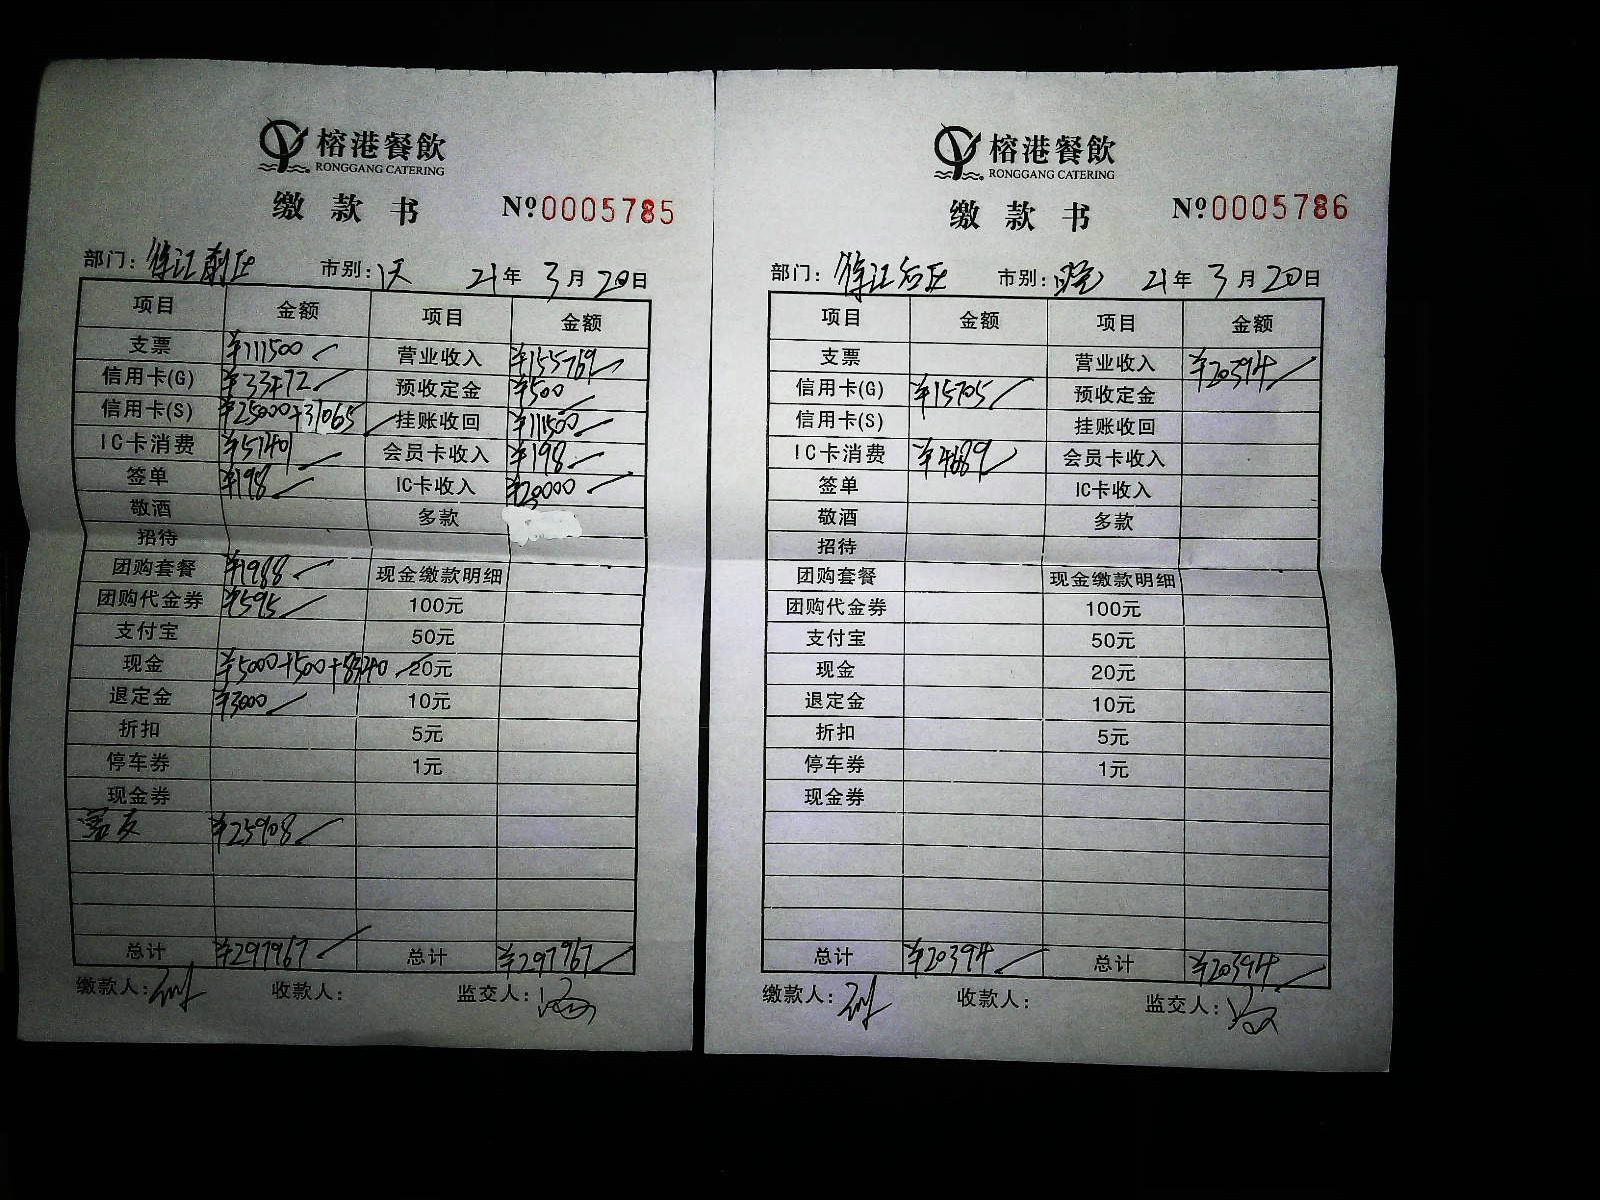 榕港餐飲
RONGGANG CATERING
缴款书 № 0005785
部门： 市别：1天 21年3月20日
项目 金额 项目 金额
支票 ¥111500 营业收入 ¥155769
信用卡(G) ¥33472 预收定金 ¥500
信用卡(S) ¥25000+31065 挂账收回 ¥111500
IC卡消费 ¥51401 会员卡收入 ¥198
签单 ¥198 IC卡收入 ¥30000
敬酒 多款
招待
团购套餐 ¥1988 现金缴款明细
团购代金券 ¥595 100元
支付宝 50元
现金 ¥5000+500+8340 20元
退定金 ¥3000 10元
折扣 5元
停车券 1元
现金券
¥25908
总计 ¥297967 总计 ¥297967
缴款人： 收款人： 监交人：
榕港餐飲
RONGGANG CATERING
缴款书 № 0005786
部门： 市别：晚 21年3月20日
项目 金额 项目 金额
支票 营业收入 ¥20394
信用卡(G) ¥15705 预收定金
信用卡(S) 挂账收回
IC卡消费 ¥4689 会员卡收入
签单 IC卡收入
敬酒 多款
招待
团购套餐 现金缴款明细
团购代金券 100元
支付宝 50元
现金 20元
退定金 10元
折扣 5元
停车券 1元
现金券
总计 ¥20394 总计 ¥20394
缴款人： 收款人： 监交人：